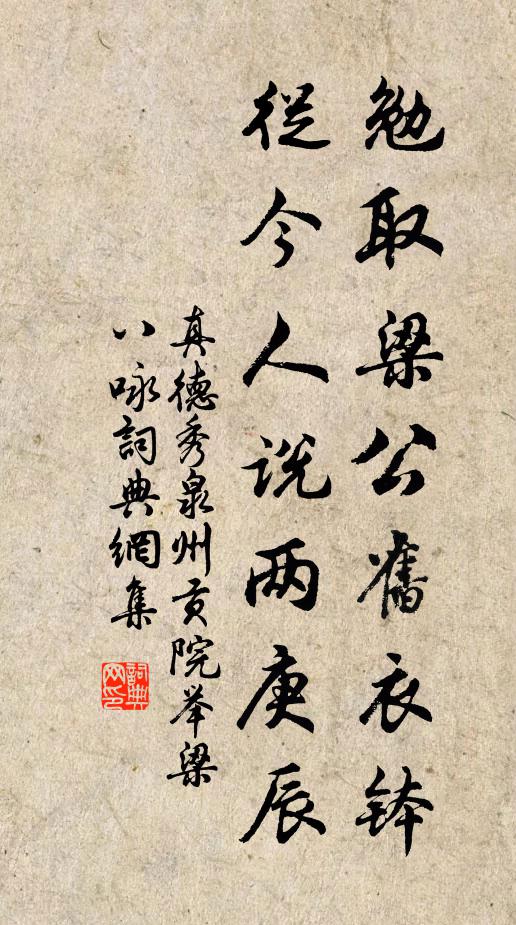 勉取梁公舊衣钵
從今人说两庚辰
真德秀泉州貢院举梁
八咏詞典網集
詞典网印